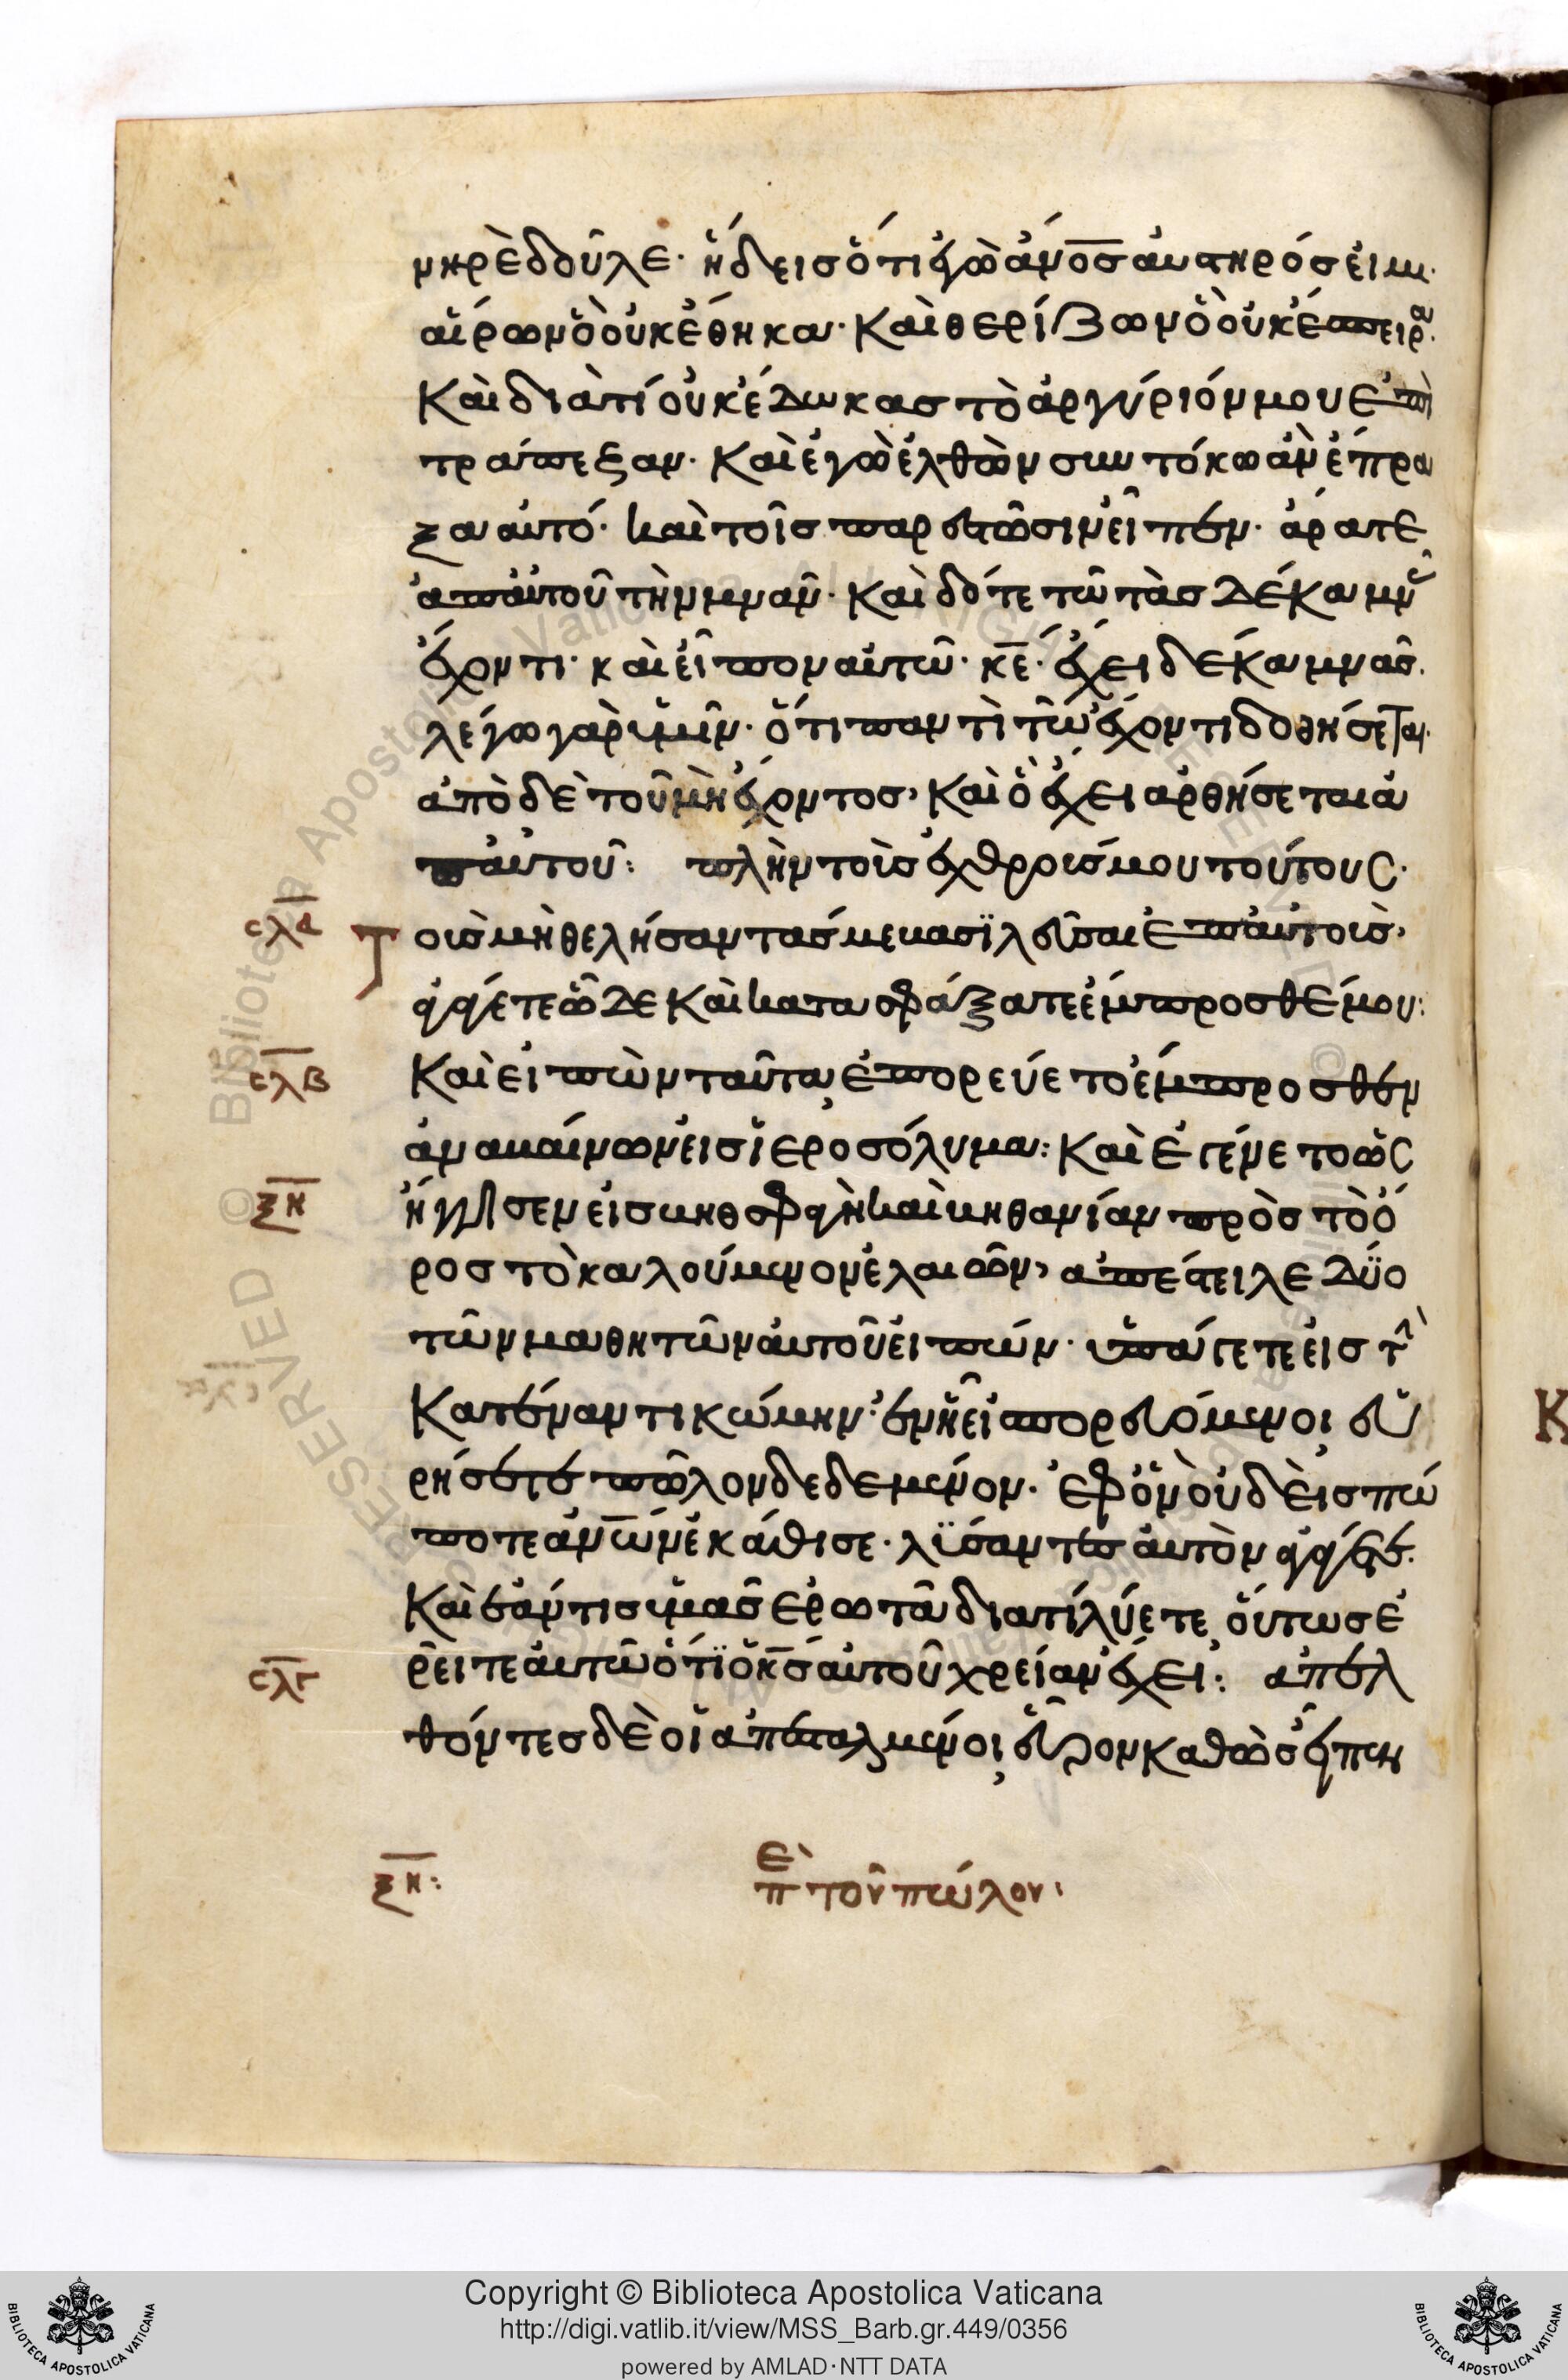 νηρὲ δοῦλε· ἤδεις ὅτι ἐγὼ ἄνο̅σ̅ αὐστηρός εἰμι·
αἴρων ὃ οὐκ ἔθηκα· Καὶ θερίζων ὃ οὐκ ἔσπειρα·
Καὶ διατί οὐκ ἔδωκας τὸ ἀργύριόν μου ἐπὶ
τράπεζαν· Καὶ ἐγὼ ἐλθὼν συν τόκω ἂν ἔπρα
ξα αὐτό· καὶ τοῖς παρεστῶσιν εἶπεν· ἄρατε
ἀπ αὐτοῦ τὴν μνᾶν· Καὶ δότε τῶ τὰς δέκα μνᾶς
ἔχοντι· καὶ εἶπον αὐτῶ· κ̅ε̅· ἔχει δέκα μνᾶς·
λέγω γὰρ ὑμῖν· ὅτι παντὶ τῶ ἔχοντι δοθήσεται·
ἀπὸ δὲ τοῦ μὴ ἔχοντος, Καὶ ὃ ἔχει ἀρθήσεται ἀ
π αὐτοῦ: πλὴν τοὺς ἐχθρούς μου τούτους·
σ̅λ̅α̅ Τ οὺς μὴ θελήσαντάς με βασιλεῦσαι ἐπ αὐτοὺς,
ἀγάγετε ὧδε Καὶ κατασφάξατε ἔμπροσθέ μου:
σ̅λ̅β̅ Καὶ εἰπὼν ταῦτα, ἐπορεύετο ἔμπροσθεν
ἀναβαίνων εἰς ἱεροσόλυμα: Καὶ ἐγένετο ὡς
ξ̅η̅ ἤγγισεν εἰς βηθσφαγὴ καὶ βηθανίαν πρὸς τὸ ὄ
ρος τὸ καλούμενον ἐλαιῶν, ἀπέστειλε δύο
τῶν μαθητῶν αὐτοῦ εἰπών· ὑπάγετε εἰς τὴν
Κατέναντι κώμην· ἐν ἧ εἰσπορευόμενοι εὑ
ρήσετε πῶλον δεδεμένον· ἐφ ὃν οὐδεὶς πώ
ποτε ἀν̅ω̅ν̅ ἐκάθισε· λύσαντες αὐτὸν ἀγάγετε·
Καὶ ἐάν τις ὑμᾶς ἐρωτᾶ διατί λύετε, οὕτως ἐ
ρεῖτε αὐτῶ ὅτι ὁ κ̅ς̅ αὐτοῦ χρείαν ἔχει: ἀπελ
σ̅λ̅γ̅
θόντες δὲ οἱ ἀπεσταλμένοι, εὗρον καθὼς εἶπεν
ξ̅η̅: Ἐπὶ τοῦ πώλου:
Copyright © Biblioteca Apostolica Vaticana
http://digi.vatlib.it/view/MSS_Barb.gr.449/0356
powered by AMLAD·NTT DATA
BIBLIOTECA APOSTOLICA VATICANA
BIBLIOTECA APOSTOLICA VATICANA